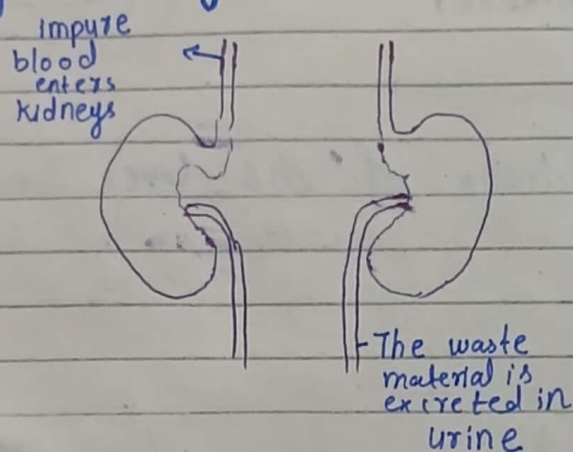 impure
blood
enters
kidneys
The waste
material is
excreted in
urine